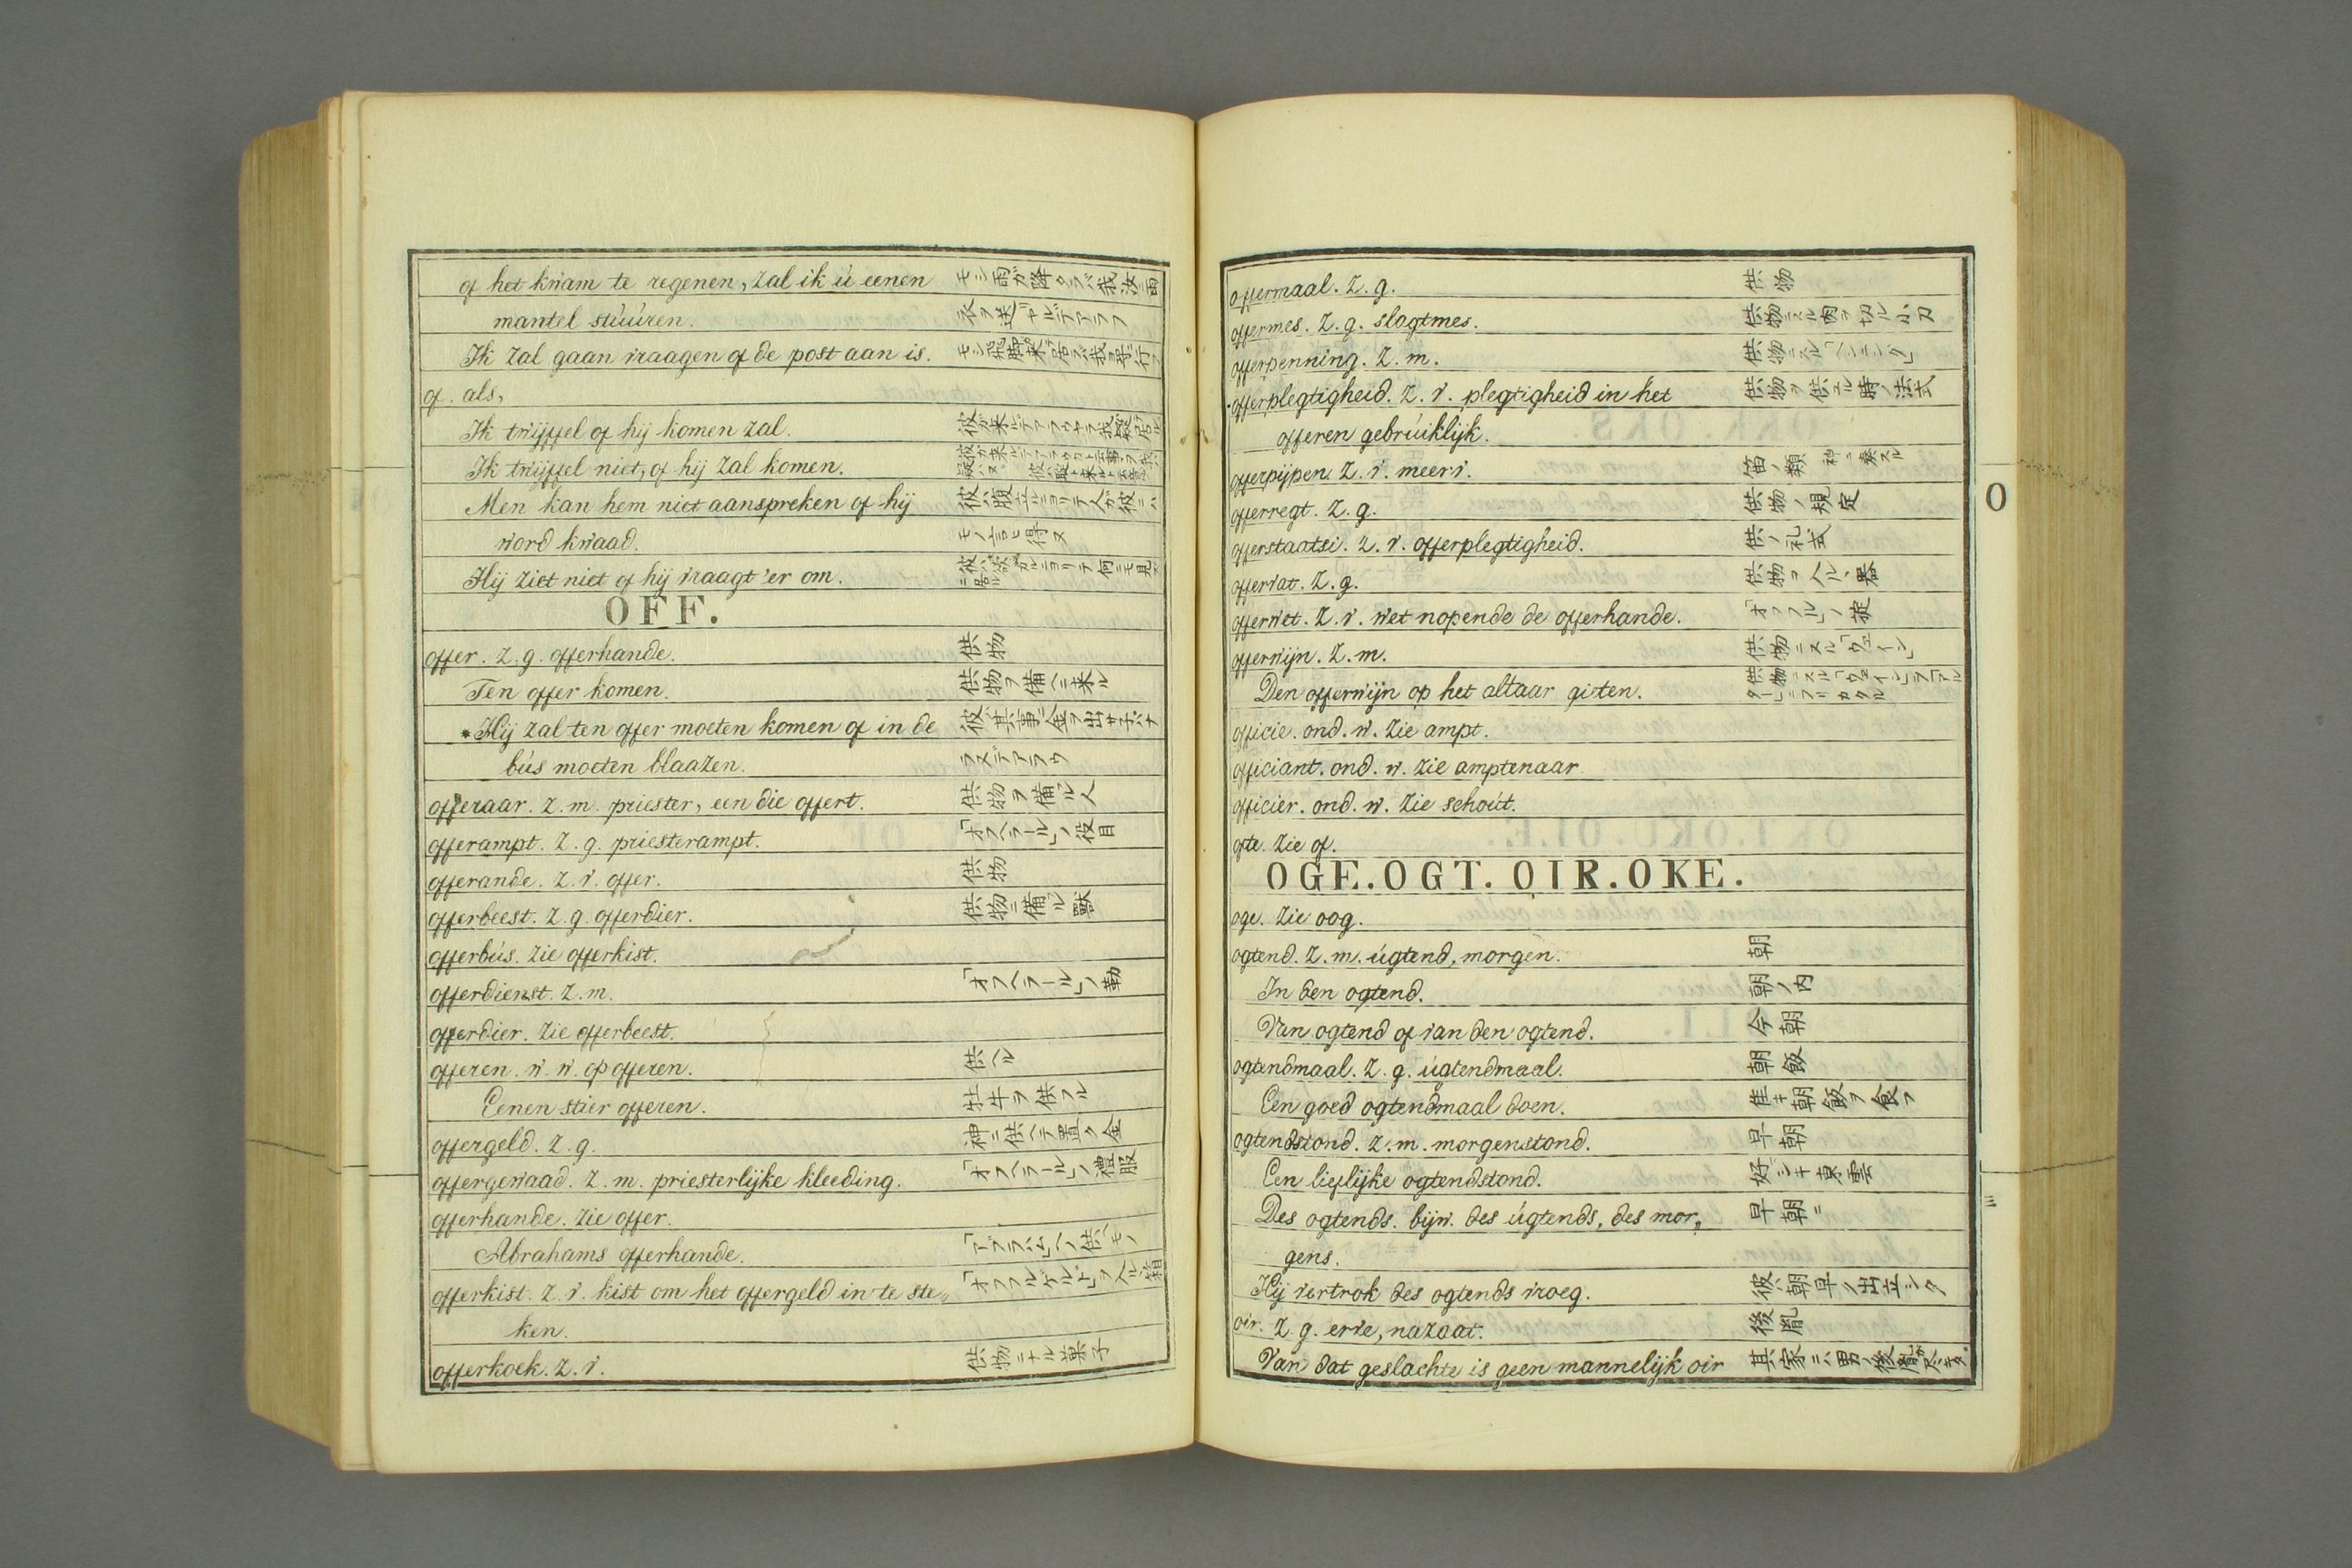 of het kwam te regenen, zal ik ú eenen モシ雨ガ降タラバ我汝ニ雨
mantel stúúren. 衣ヲ送ヤルデアラフ
Ik zal gaan vraagen of de post aan is.
of. als,
Ik twijffel of hij komen zal.
Ik twijffel niet, of hij zal komen.
Men kan hem niet aanspreken of hij
word kwaad. モノ言ヒ得ヌ
Hij ziet niet of hij vraagt 'er om.
OFF.
offer. z. g. offerhande. 供物
Ten offer komen. 供物ヲ備ヘニ来ル
*Hij zal ten offer moeten komen of in de
bús moeten blaazen. ラヌデアラウ
offeraar. z. m. priester, een die offert. 供物ヲ備ル人
offerampt. z. g. priesterampt. 「オフヘラール」ノ役目
offerande. z. v. offer. 供物
offerbeest. z. g. offerdier. 供物ニ備ル獸
offerbús. zie offerkist.
offerdienst. z. m. 「オフヘラール」ノ勤
offerdier. zie offerbeest.
offeren. w. w. op offeren. 供ヘル
Eenen stier offeren. 牡牛ヲ供フル
offergeld. z. g. 神ニ供ヘテ置ク金
offergewaad. z. m. priesterlijke kleeding. 「オフヘラール」ノ禮服
offerhande. zie offer.
Abrahams offerhande. 「アブラハム」ノ供モノ
offerkist. z. v. kist om het offergeld in te ste„ 「オフフルゲルド」ヲ入ル箱
ken.
offerkoek. z. v. 供物ニナル菓子
offermaal. z. g. 供物
offermes. z. g. slagtmes. 供物ニスル肉ヲ切ル小刀
offerpenning. z. m. 供物ニスル「ペンニング」
offerplegtigheid. z. v. plegtigheid in het 供物ヲ供エル時ノ法式
offeren gebrúiklijk.
offerpijpen. z. v. meerv. 笛ノ類 神ニ奏スル
offerregt. z. g. 供物ノ規定
offerstaatsi. z. v. offerplegtigheid. 供ノ礼式
offervat. z. g. 供物ヲ入ル器
offerwet. z. v. wet nopende de offerhande. 「オフフル」ノ掟
offerwijn. z. m. 供物ニスル「ウェイン」
Den offerwijn op het altaar gieten. 供物ニスル「ウェイン」ヲ「アルタール」ニフリカクル
officie. ond. w. zie ampt.
officiant. ond. w. zie amptenaar
officier. ond. w. zie schoút.
ofte. zie of.
OGE. OGT. OIR. OKE.
oge. zie oog.
ogtend. z. m. úgtend, morgen. 朝
In den ogtend. 朝ノ内
Van ogtend of van den ogtend. 今朝
ogtendmaal. z. g. úgtendmaal. 朝飯
Een goed ogtendmaal doen. 佳キ朝飯ヲ食フ
ogtendstond. z. m. morgenstond. 早朝
Een lieflijke ogtendstond. 好シキ東雲
Des ogtends. bijw. des úgtends, des mor„ 早朝ニ
gens.
Hij vertrok des ogtends vroeg. 彼ハ朝早ク出立シタ
oir. z. g. erve, nazaat. 後胤
Van dat geslachte is geen mannelijk oir
O